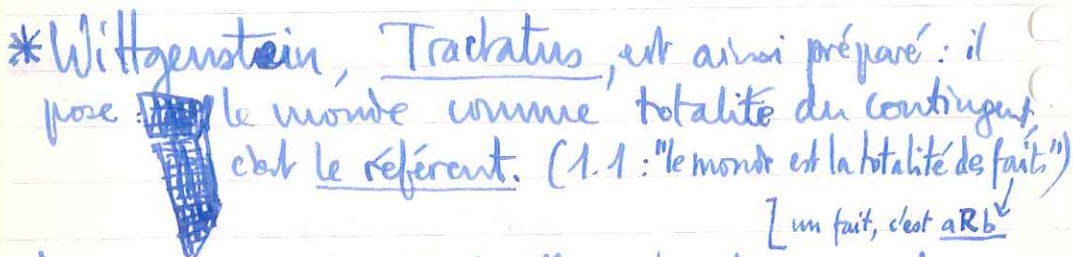 *Wittgenstein, Tractatus, est ainsi préparé : il
pose : le monde comme totalité du contingent,
c'est le référent. (1.1 : "le monde est la totalité des faits")
[un fait, c'est aRb